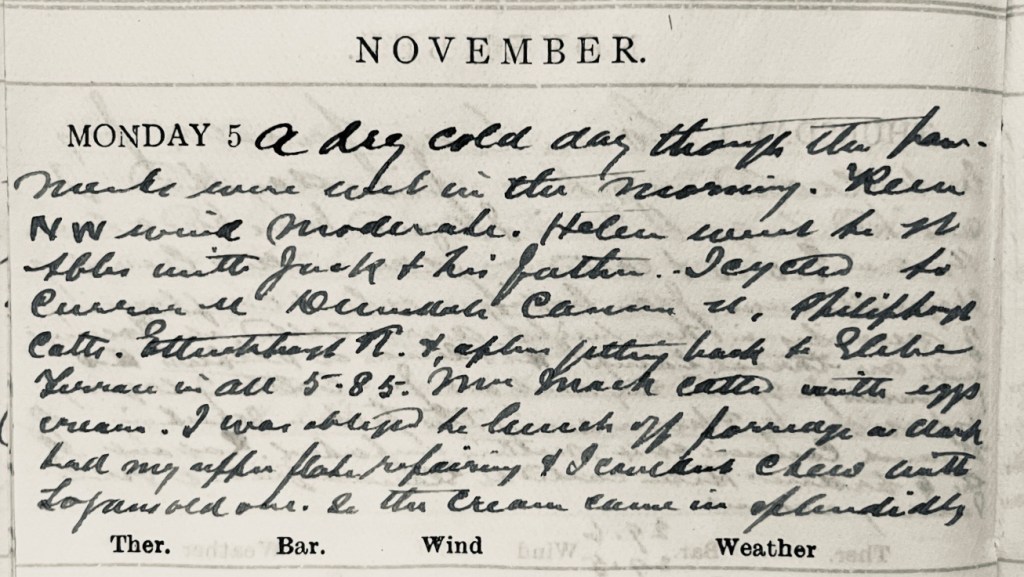 NOVEMBER.
MONDAY 5 A dry cold day though the pave-
ments were wet in the morning. Keen
NW wind moderate. Helen went to St
Abbs with Jack & his father. I cycled to
Dundah M, Philiphaugh
Cotts. Ettrickhaugh R. & after getting back to Glebe
Terrace in all 5.85. Mrs Mack called with eggs
cream. I was obliged to lunch off porridge as
had my upper plate repairing & I couldn't chew with
Logans old one. So the cream came in splendidly
Ther. Bar. Wind Weather